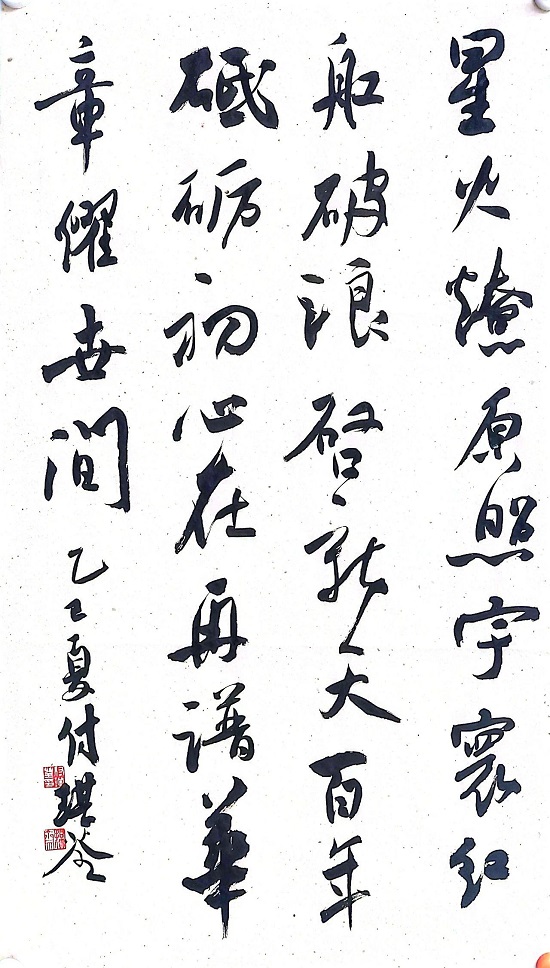 星火燎原照宇寰红
船破浪启新天百年
砥砺初心在再谱華
章耀世間
乙巳夏付琪